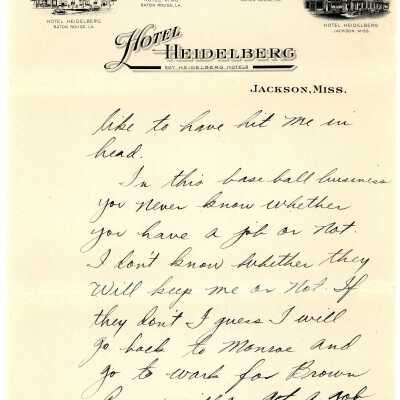 BATON ROUGE, LA.
HOTEL HEIDELBERG
BATON ROUGE, LA.
HOTEL HEIDELBERG
JACKSON, MISS.
HOTEL
HEIDELBERG
ROY HEIDELBERG HOTELS
JACKSON, MISS.
like to have hit me in
head.
In this base ball business
you never know whether
you have a job or not.
I don't know whether they
will keep me or not. If
they don't I guess I will
go back to Monroe and
go to work for Brown
got a job